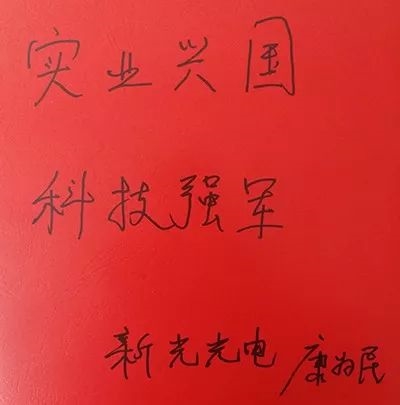 实业兴国
科技强军
新光光电 康为民